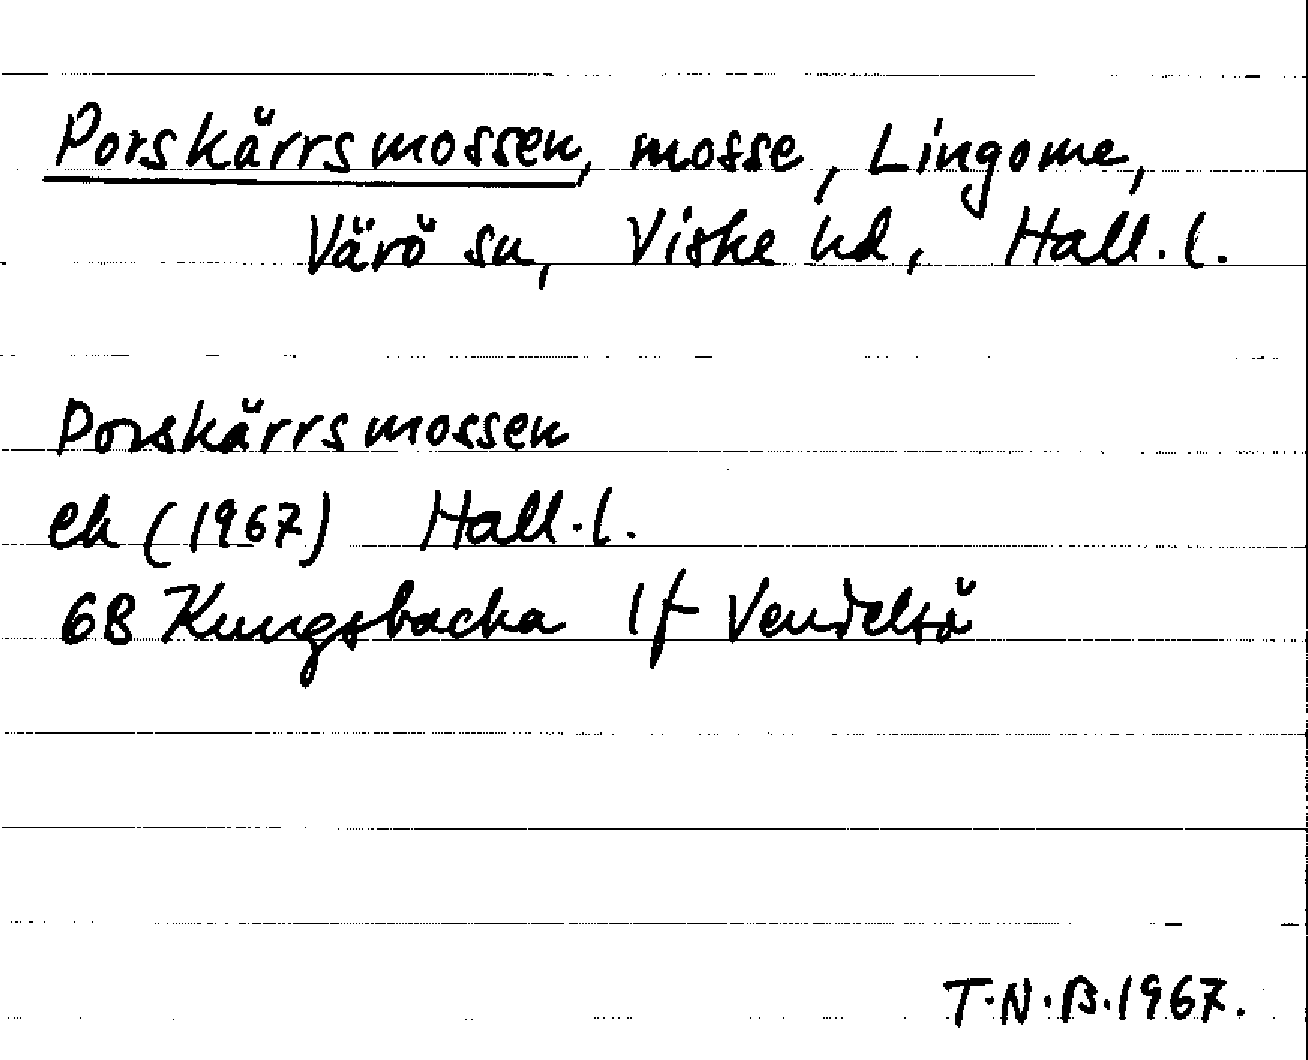 Porskärrsmossen, mosse, Lingome,
Värö sn, Viske hd, Hall. l.
Porskärrsmossen
ek (1967) Hall. l.
6B Kungsbacka 1f Vendelsö
T.N.B. 1967.